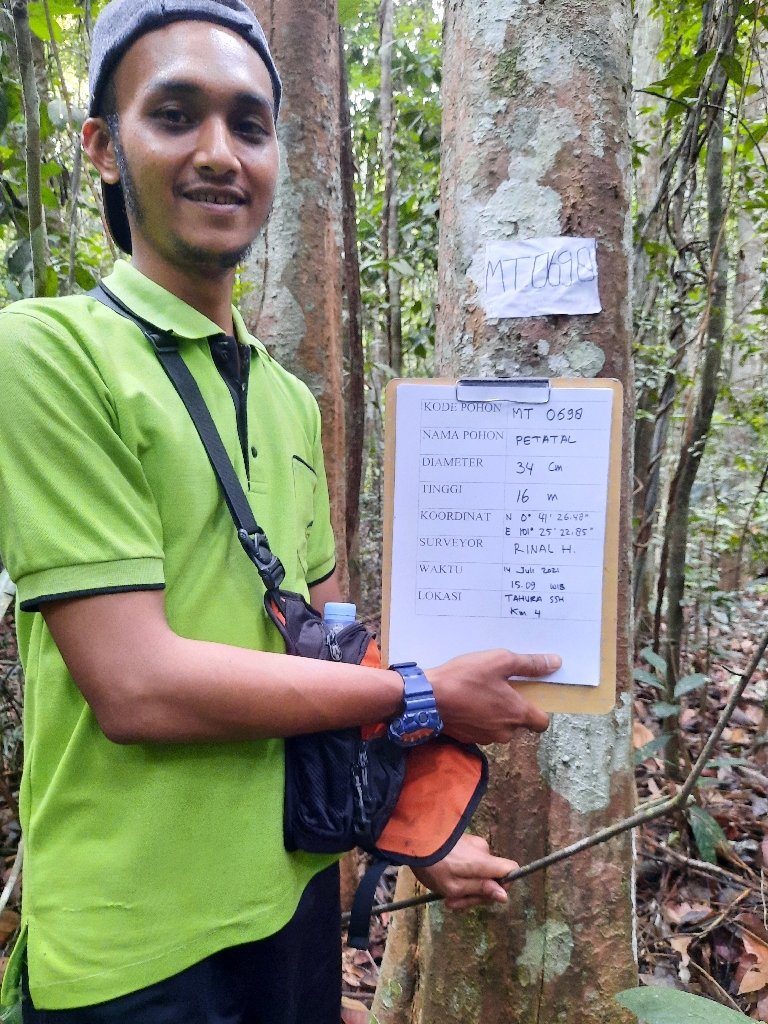 MT.0698
KODE POHON MT 0698
NAMA POHON PETATAL
DIAMETER 34 Cm
TINGGI 16 m
KOORDINAT N 0° 41' 26.48"
E 101° 25' 22.85"
SURVEYOR RINAL H.
WAKTU 14 Juli 2021
15.09 WIB
LOKASI TAHURA SSH
Km 4